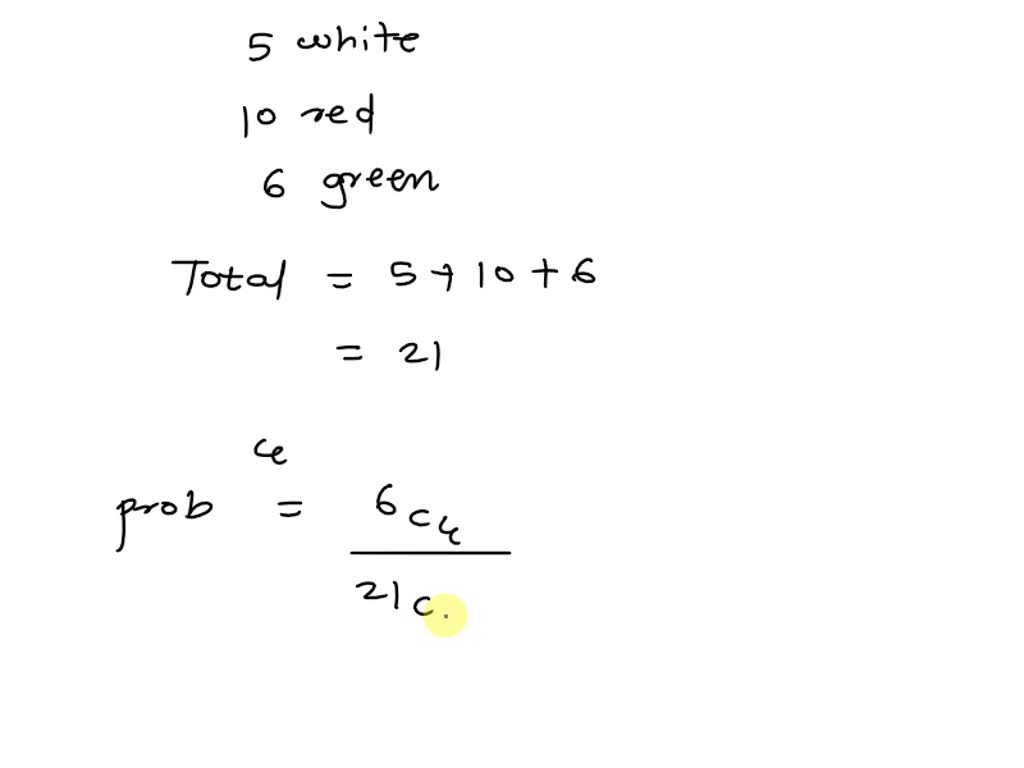 5 white
10 red
6 green
Total = 5 + 10 + 6
= 21
4
prob = 6C4
21C